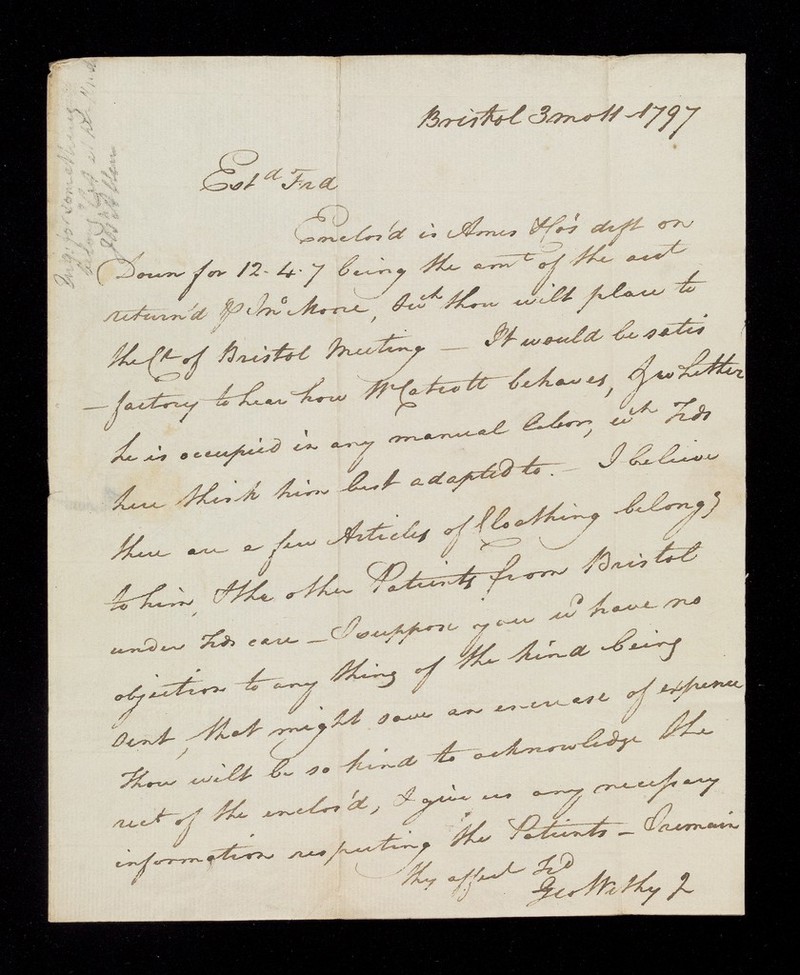 Bristol 3 mo 11 - 1797
Estd Frd
Enclos'd is Ames & Co's dft on
Down for 12.4.7 being the amt of the acct
return'd P Jno Moore, wch thou wilt place to
the Ct of Bristol Meeting — It would be satis
-factory to hear how W Catcott behaves, & whether
he is occupied in any manual labor, wch Frds
here think him best adapted to. — I believe
there are a few Articles of Cloathing belongg
to him, & the other Patients from Bristol
under Frds care — I suppose you wd have no
objection to any thing of the kind being
sent, that might save an encrease of expence
Thou wilt be so kind to acknowledge the
rect of the enclos'd, & give us any necessary
information respecting the Patients — I remain
thy affect Frd
Geo Withy J